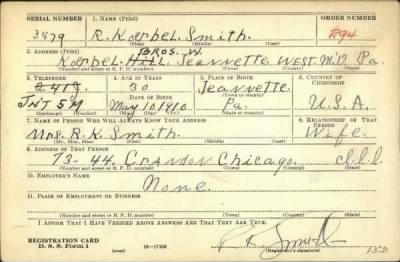 SERIAL NUMBER 1. NAME (Print) ORDER NUMBER
3479 R. Koerbel. Smith. 894
(First) (Middle) (Last)
2. ADDRESS (Print) BROS. W.
Koerbel. HILL. Jeannette WEST. M'D Pa.
(Number and street or R. F. D. number) (Town) (County) (State)
3. TELEPHONE 4. AGE IN YEARS 5. PLACE OF BIRTH 6. COUNTRY OF CITIZENSHIP
2413 30 Jeannette
JNT 59 DATE OF BIRTH (Town or county)
May 10 1910 Pa. U.S.A.
(Exchange) (Number) (Mo.) (Day) (Yr.) (State or country)
7. NAME OF PERSON WHO WILL ALWAYS KNOW YOUR ADDRESS 8. RELATIONSHIP OF THAT PERSON
Mrs. R. K. Smith. Wife.
(Mr., Mrs., Miss) (First) (Middle) (Last)
9. ADDRESS OF THAT PERSON
73-44. Crandon Chicago. Ill.
(Number and street or R. F. D. number) (Town) (County) (State)
10. EMPLOYER'S NAME
None.
11. PLACE OF EMPLOYMENT OR BUSINESS
(Number and street or R. F. D. number) (Town) (County) (State)
I AFFIRM THAT I HAVE VERIFIED ABOVE ANSWERS AND THAT THEY ARE TRUE.
REGISTRATION CARD
D. S. S. Form 1 (over) 16—17105 R K Smith